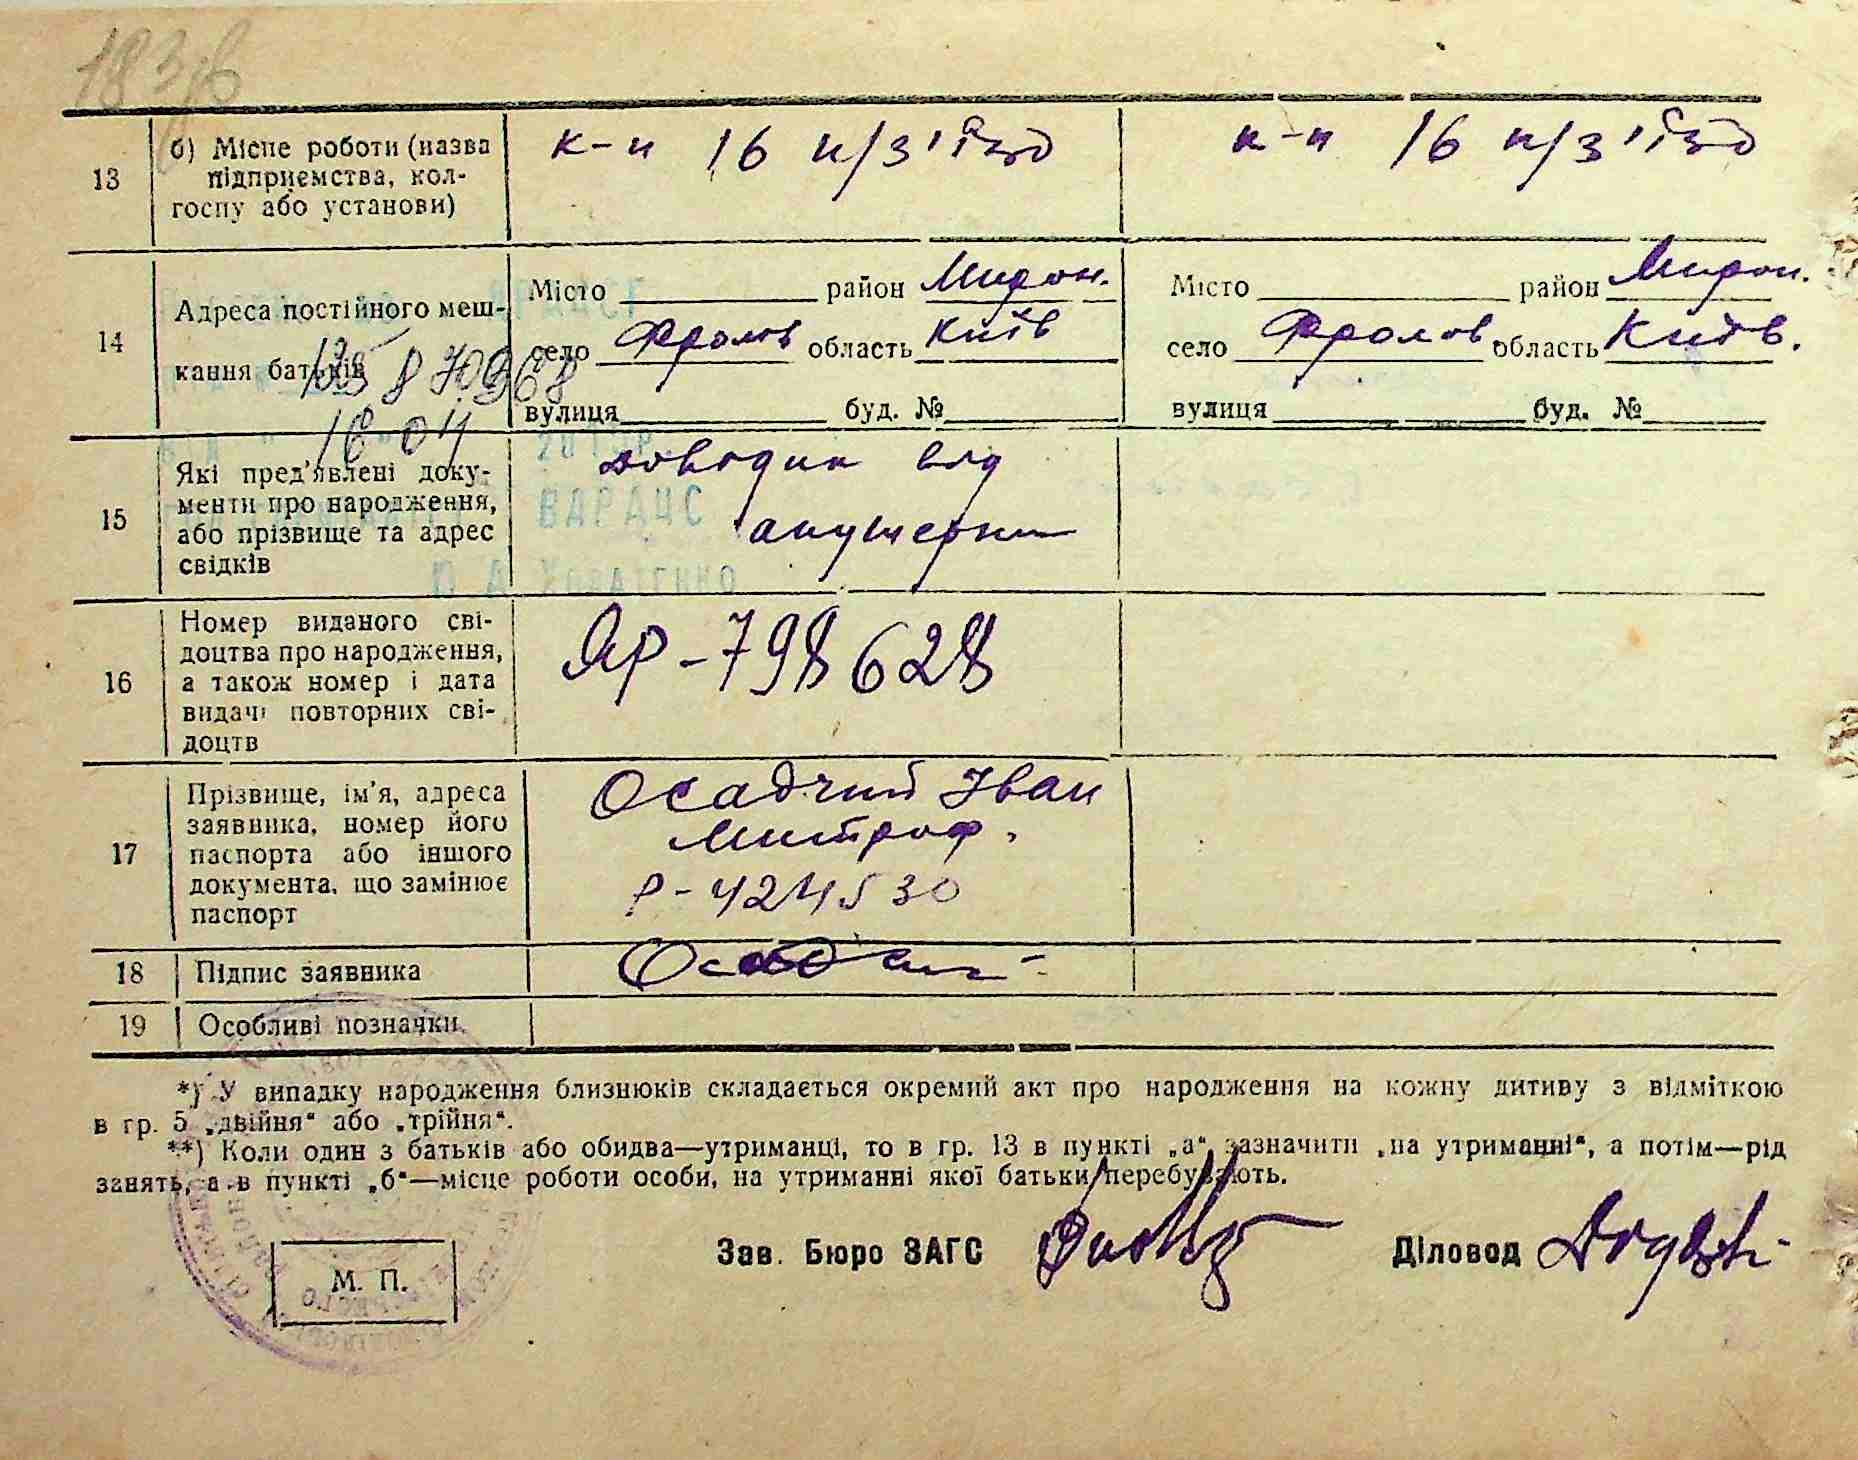 183
13 б) Місце роботи (назва підприємства, колгоспу або установи)
к-п 16 п/з'їзд
к-п 16 п/з'їзд
14 Адреса постійного мешкання батьків
Місто район Мирон.
село Фролов область Київ
вулиця буд. №
Місто район Мирон.
село Фролов область Київ.
вулиця буд. №
16 04
ВАРАЦС
15 Які пред'явлені документи про народження, або прізвище та адрес свідків
довідки від
акушерки
16 Номер виданого свідоцтва про народження, а також номер і дата видачі повторних свідоцтв
ЯР-798628
17 Прізвище, ім'я, адреса заявника, номер його паспорта або іншого документа, що замінює паспорт
Осадчий Іван
Митроф.
Р-424530
18 Підпис заявника
Осадчий
19 Особливі позначки
*) У випадку народження близнюків складається окремий акт про народження на кожну дитиву з відміткою
в гр. 5 „двійня“ або „трійня“.
**) Коли один з батьків або обидва—утриманці, то в гр. 13 в пункті „а“ зазначити „на утриманні“, а потім—рід
занять, а в пункті „б“—місце роботи особи, на утриманні якої батьки перебувають.
Зав. Бюро ЗАГС
Діловод
М. П.